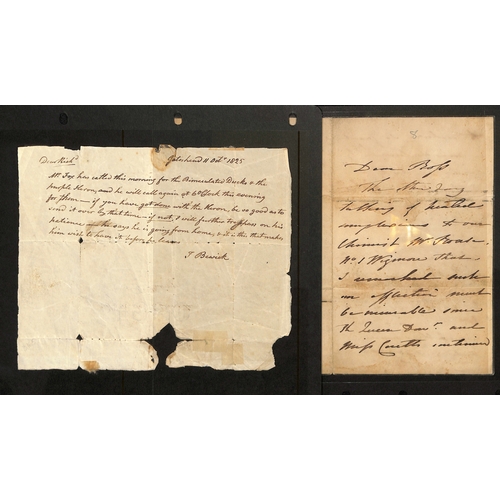 Dear Rich.d Gateshead 11 Oct.r 1825
Mr. Fox has called this morning for the Bimaculated Ducks & the
purple Heron, and he will call again at 6 o'Clock this evening
for them — if you have got done with the Heron, be so good as to
send it over by that time, if not, I will further trespass on his
patience he says he is going from home, & it is this that makes
him wish to have it before he leaves
T Bewick
Dear Boss
The other day
to thing of
complaints to our
Chemist Mr.
No. 1 Wigmore that
I remarked such
an affection must
be miserable since
the Queen Dow.r and
Miss Coutts continued